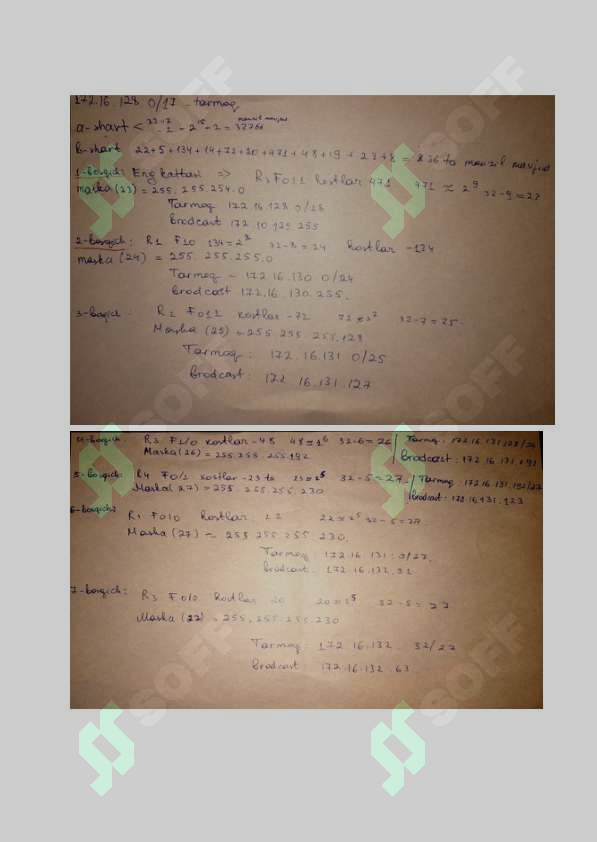 172.16.128 0/17 - tarmoq
a-shart < 2¹⁵-2 = 32766
b-shart 22+5+134+14+72+20+471+48+19+23+8 = 836 ta manzil mavjud
1-bosqich: Eng kattasi => R3 F0/1 hostlar 471 471 ≈ 2⁹ 32-9=23
maska (23) = 255.255.254.0
Tarmoq 172.16.128.0/23
Brodcast 172.16.129.255
2-bosqich: R1 F1/0 134=2⁸ 32-8=24 hostlar -134
maska (24) = 255.255.255.0
Tarmoq - 172.16.130.0/24
Brodcast 172.16.130.255.
3-bosqich: F0/1 hostlar -72 32-7=25.
Maska (25) = 255.255.255.128
Tarmoq: 172.16.131 0/25
Brodcast: 172 16.131.127
4-bosqich: R3 F1/0 hostlar -48 32-6=26 Tarmoq: 172.16.131.128/26
Maska (26) = 255.255.255.192 Brodcast: 172.16.131.191
5-bosqich: R4 F0/1 hostlar -23 ta 32-5=27. Tarmoq: 172.16.131.192/27
Maska (27) = 255.255.255.230 Brodcast: 172.16.131.223
6-bosqich: R1 F0/0 hostlar: 22 22≈2⁵ 32-5=27.
Maska (27) = 255.255.255.230.
Tarmoq: 172.16.131.0/27.
Brodcast: 172.16.132.31
7-bosqich: R3 F0/0 hostlar 20 20≈2⁵ 32-5=27
Maska (27) = 255.255.255.230
Tarmoq: 172.16.132. 32/27
Brodcast: 172.16.132.63.
SOFF
SOFF
SOFF
SOFF
SOFF
SOFF